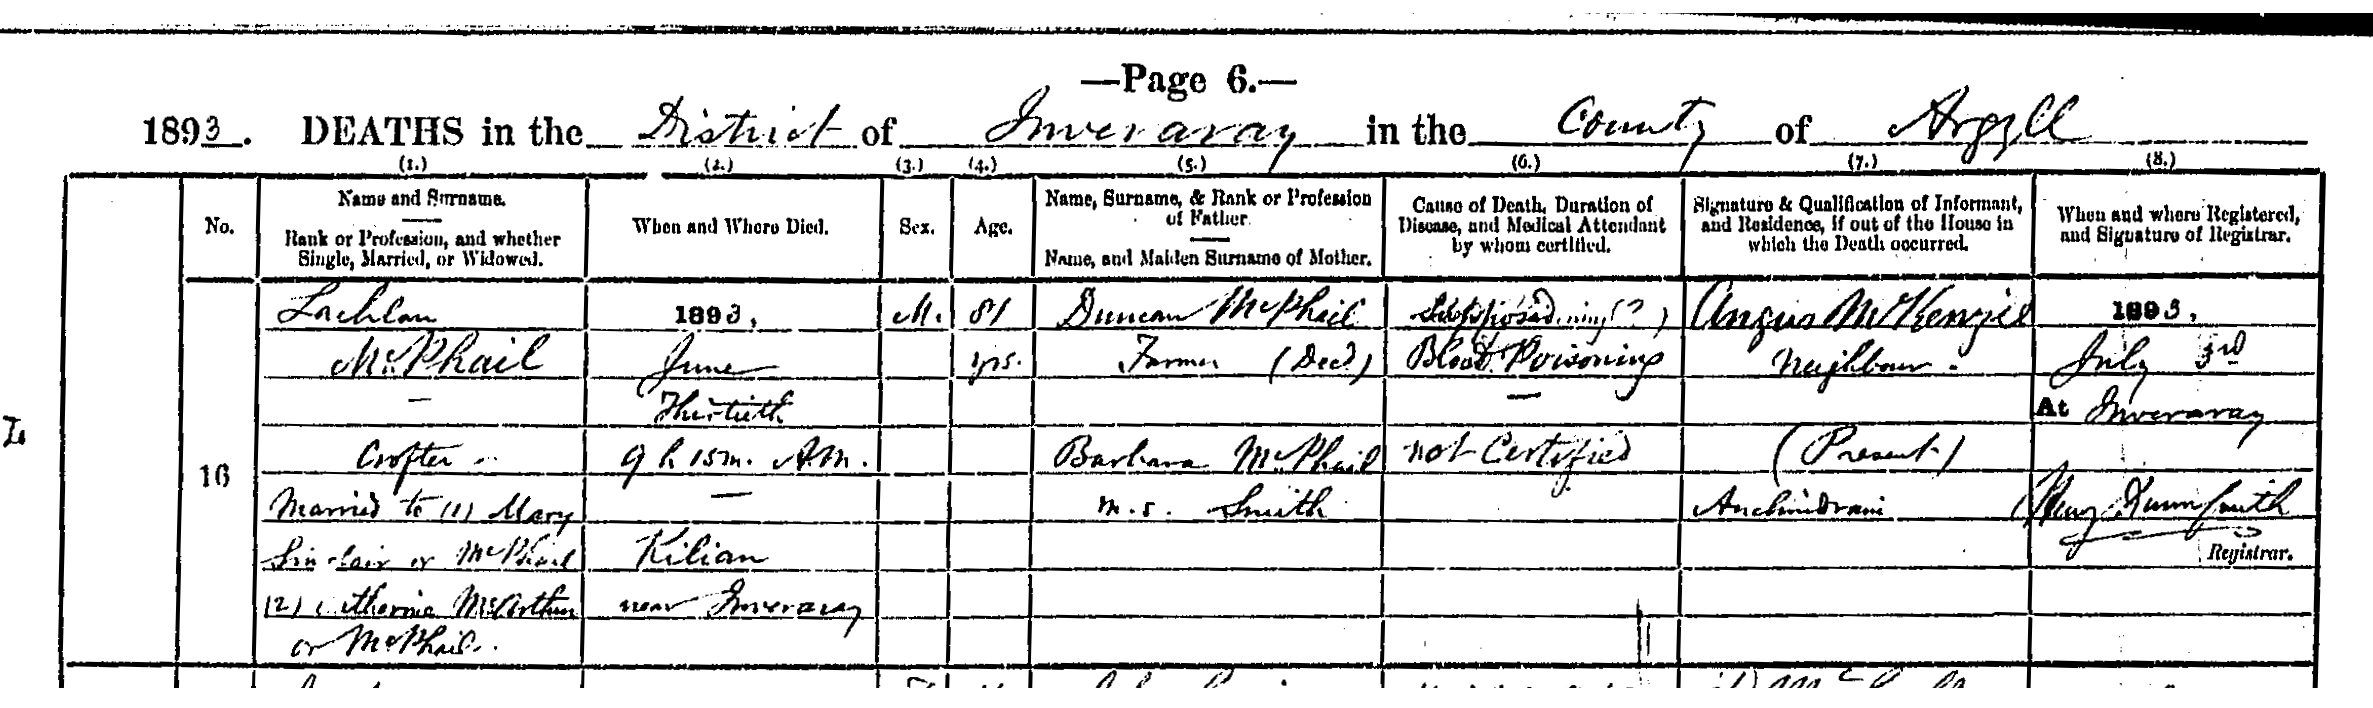 —Page 6.—
1893. DEATHS in the District of Inveraray in the County of Argyll
(1.) (2.) (3.) (4.) (5.) (6.) (7.) (8.)
No.
Name and Surname.
Rank or Profession, and whether
Single, Married, or Widowed.
When and Where Died.
Sex.
Age.
Name, Surname, & Rank or Profession
of Father.
Name, and Maiden Surname of Mother.
Cause of Death, Duration of
Disease, and Medical Attendant
by whom certified.
Signature & Qualification of Informant,
and Residence, if out of the House in
which the Death occurred.
When and where Registered,
and Signature of Registrar.
16
Lachlan
McPhail
—
Crofter
Married to (1) Mary
Sinclair or McPhail
(2) Catherine McArthur
or McPhail.
1893,
June
Thirtieth
9 h. 15 m. A.M.
—
Kilian
near Inveraray
M.
81
yrs.
Duncan McPhail
Farmer (Decd)
Barbara McPhail
m.s. Smith
(?)
Blood Poisoning
—
not Certified
Angus McKenzie
Neighbour.
(Present)
Auchindrain
1893,
July 3rd
At Inveraray
Registrar.